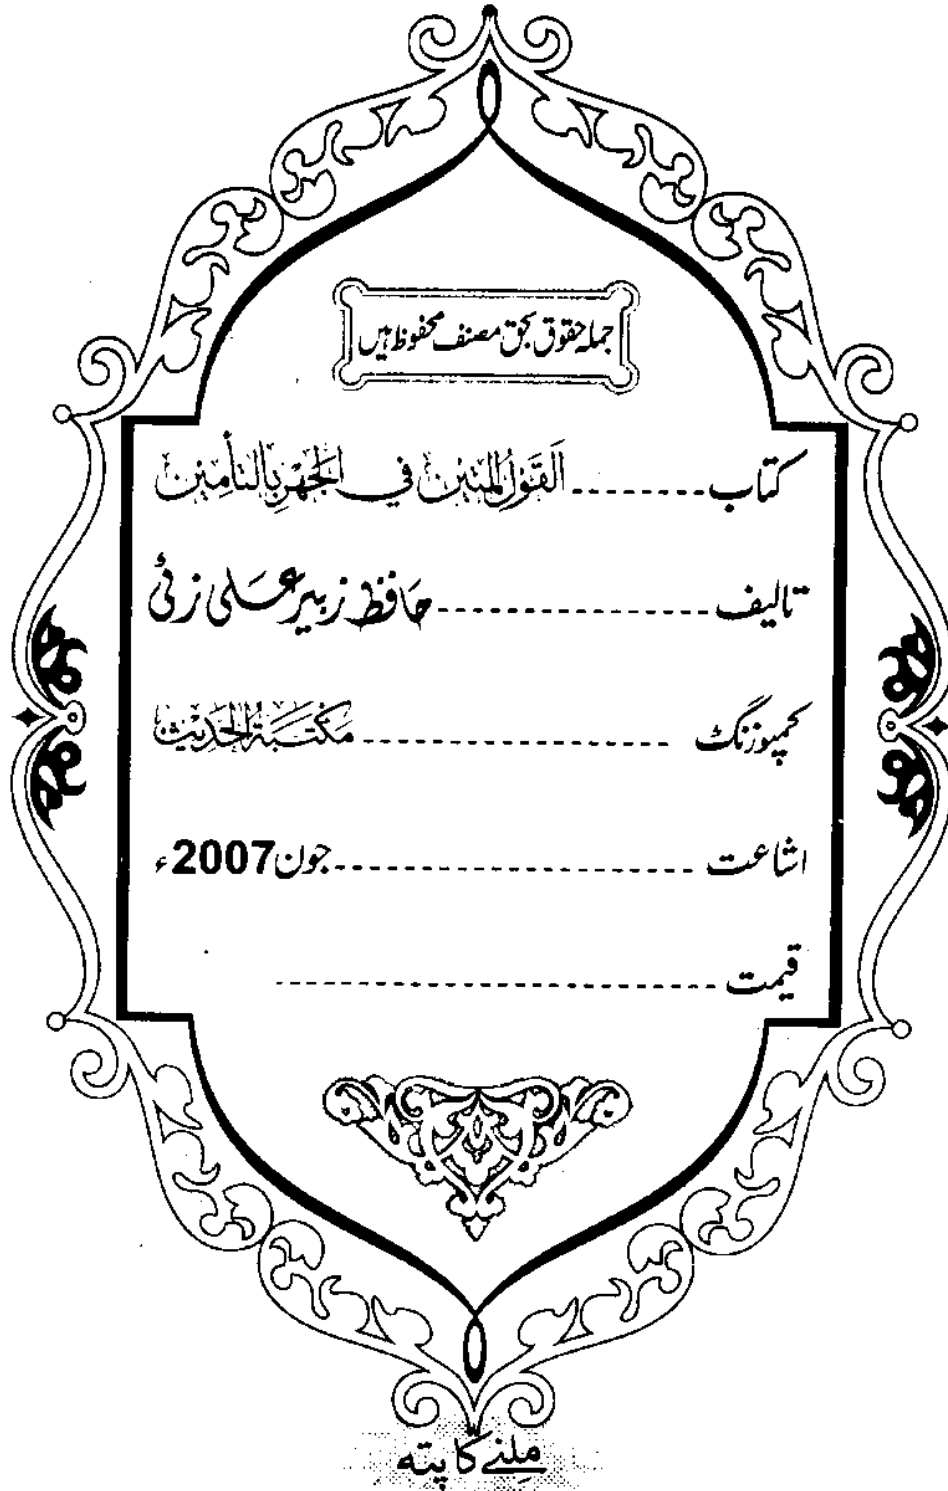 جملہ حقوق بحق مصنف محفوظ ہیں
کتاب -------- اَلقَولُ المَتِين فی الجَهْرِ بِالتَّأمِين
تالیف ---------------- حافظ زبیر علی زئی
کمپوزنگ ------------------ مَکْتَبَةُ الحَدِیْث
اشاعت ------------------- جون 2007ء
قیمت -----------------------
مِلنے کا پتہ